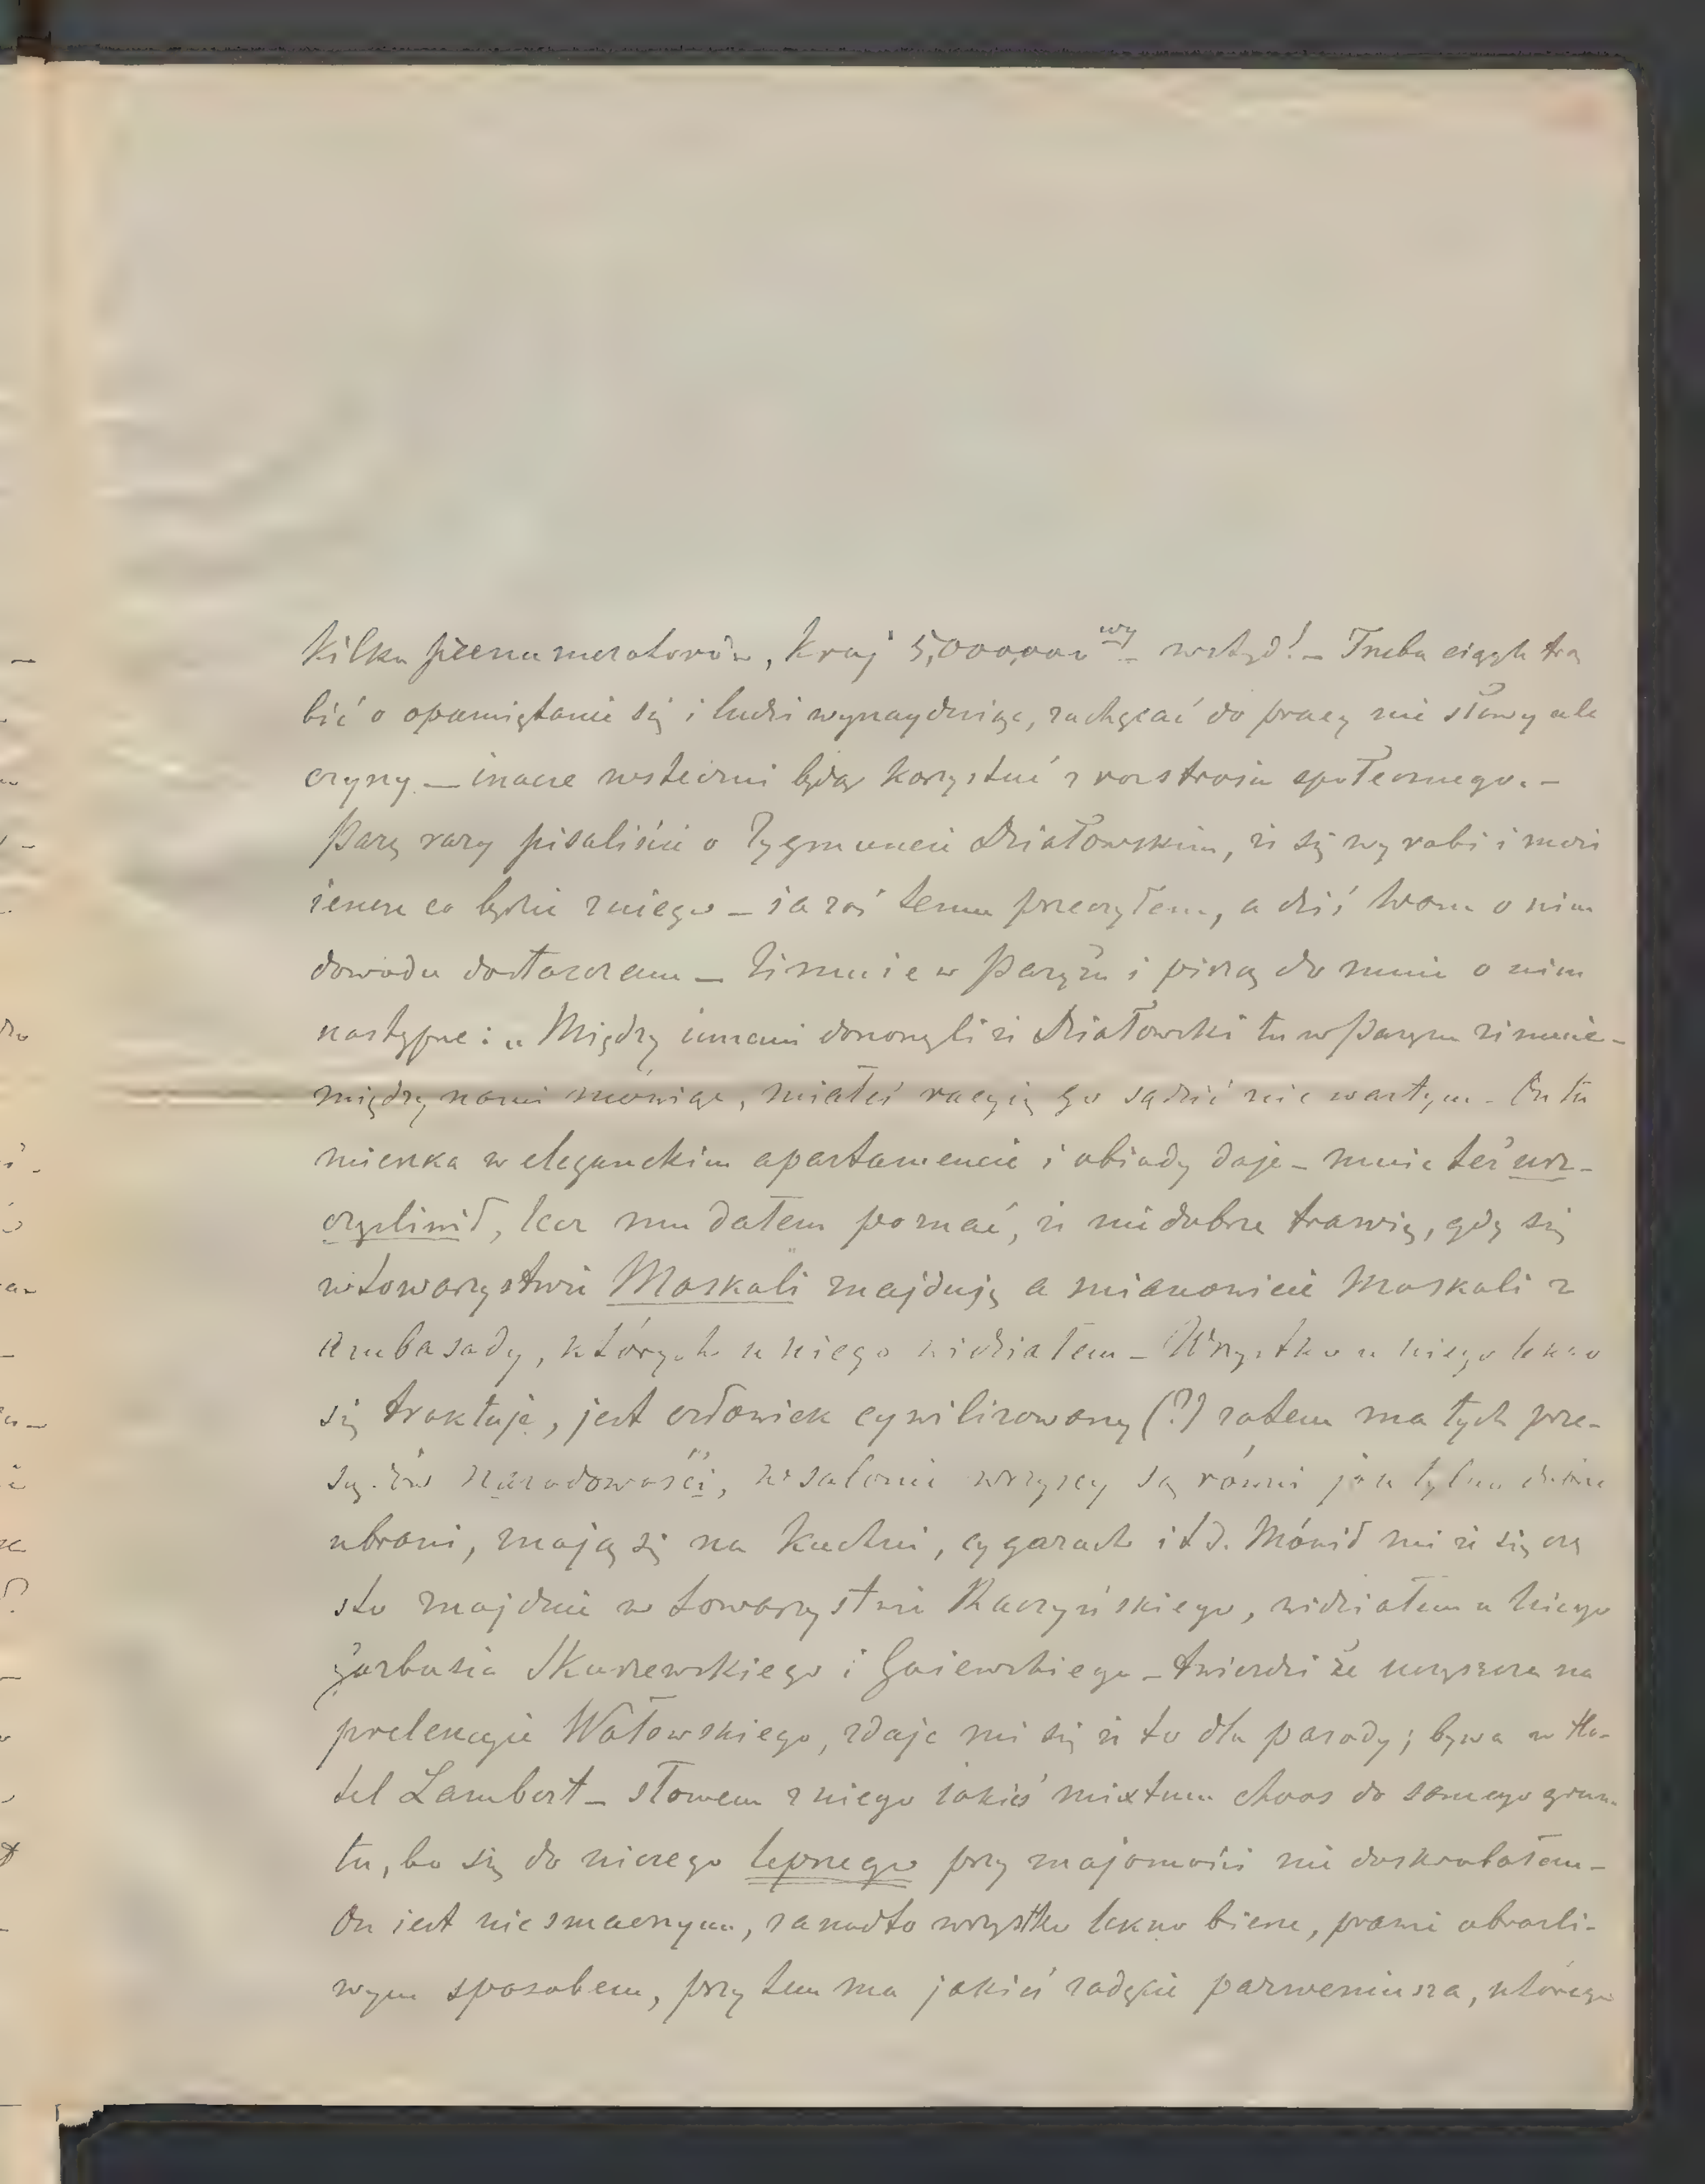 kilku prenumeratorów, kraj 5,000,000wy – wstyd! – Trzeba ciągle trą
bić o opamiętanie się i ludzi wynaydując, zachęcać do pracy nie słowy ale
czyny – inacze wsteczni będą korzystać z rozstroiu społecznego. –
Parę razy pisaliście o Zygmuncie Działowskim, iż się wyrobi i może
ieszcze co będzie z niego – ia zaś temu przeczyłem, a dziś wam o nim
dowodu dostarczam – Zimuie w Paryżu i piszą do mnie o nim
następne: „Między innemi donoszą li iż Działowski tu w Paryżu zimuie –
między nami mówiąc, miałeś racyię go sądzić nic wartym – On tu
mieszka w eleganckim apartamencie i obiady daje – mnie też usz-
częśliwił, lecz mu dałem poznać, iż nie dobrze trawię, gdy się
w towarzystwie Moskali znajduję a mianowicie Moskali z
ambasady, których u niego widziałem – Wszystko u niego lekko
się traktuje, jest człowiek cywilizowany (?) zatem ma tych prze-
sądów narodowości, w salonie wszyscy są równi jak tylko dobrze
ubrani, znają się na kuchni, cygarach itd. Mówił mi iż się czę
sto znajduie w towarzystwie Raczyńskiego, widziałem u niego
garbusia Skurzewskiego i Gaiewskiego – twierdzi że uczęszcza na
prelekcyie Wołowskiego, zdaje mi się iż to dla parady; bywa w Ho-
tel Lambert – słowem z niego iakieś mixtum chaos do samego grun-
tu, bo się do niczego lepszego przy znajomości nie doskrobałem –
On iest niesmacznym, zanadto wszystko lekko bierze, prawie obraźli-
wym sposobem, przy tem ma jakieś zadęcie parweniusza, którego